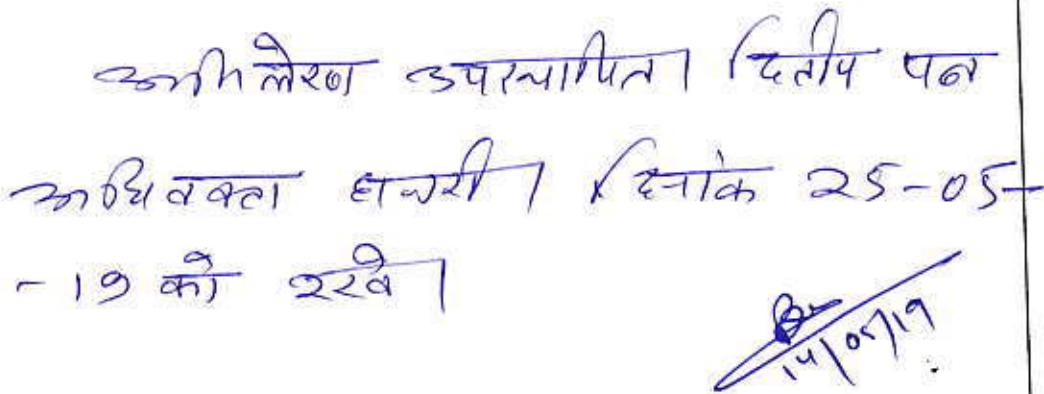 अभिलेख उपस्थापित। द्वितीय पक्ष
अधिवक्ता हाजरी। दिनांक 25-05-
-19 को रखें।
14/05/19